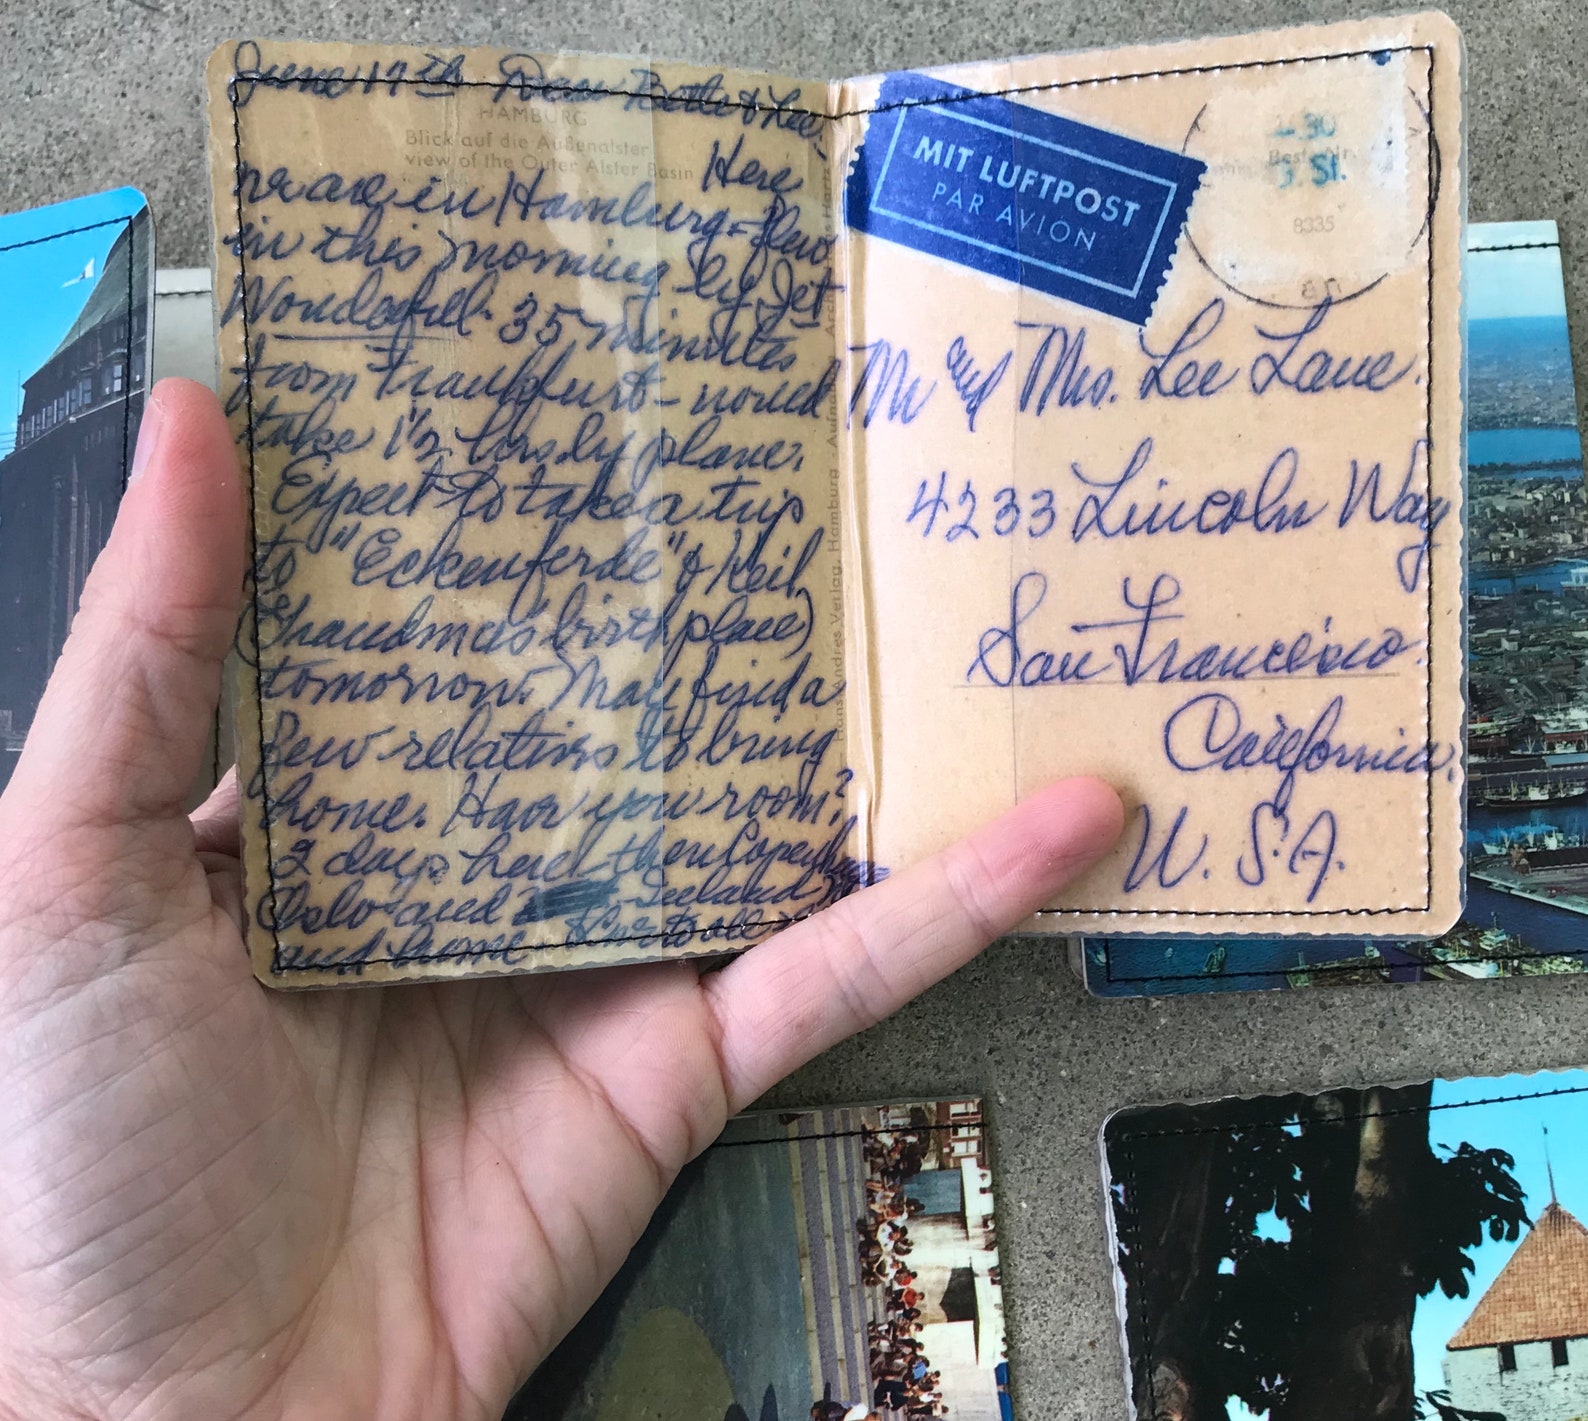 June 17th Dear Bette & Lee-
HAMBURG
Blick auf die Außenalster
view of the Outer Alster Basin
Here
we are in Hamburg - flew
in this morning by Jet
Wonderful. 35 minutes
from Frankfurt - would
take 1½ hrs. by plane.
Expect to take a trip
to "Eckenferde" & Keil,
(Grandma's birthplace)
tomorrow. May find a
few relatives to bring
home. Have you room?
2 days here then Copenhagen
Oslo and Iceland
and home. to all
Hans Andres Verlag, Hamburg
MIT LUFTPOST
PAR AVION
-30
3. St.
8335
Mr and Mrs. Lee Lane.
4233 Lincoln Way
San Francisco.
California.
U. S. A.